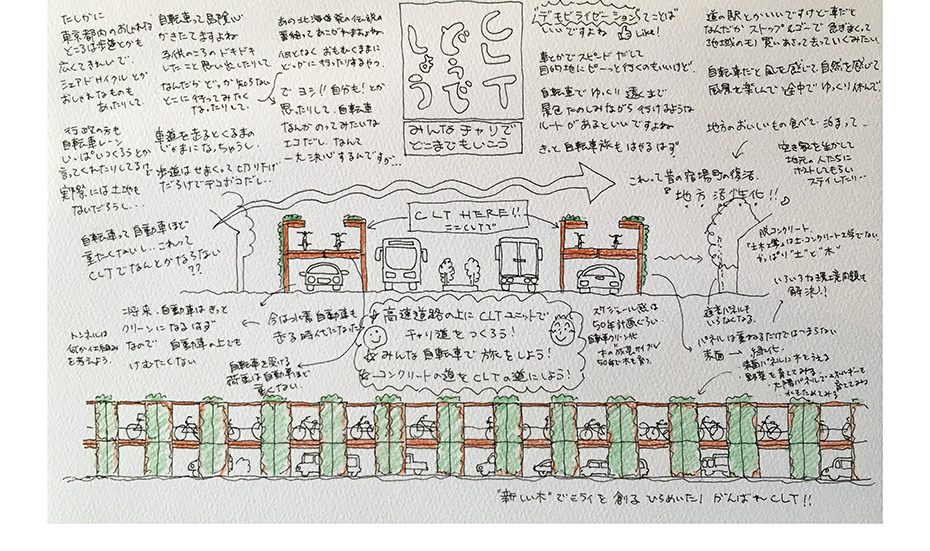 たしかに
東京都内のおしゃれな
ところは歩道とかも
広くてきれいで、
シェアサイクルとか
おしゃれなものも
あったりして。
行政の方も
自転車レーン
いっぱいつくろうとか
言ってくれたりしてるけど
実際には土地も
ないだろうし…
自転車って冒険心
かきたてますよね
子供のころのドキドキ
したこと思い出したりして。
なんだかどっか知らない
とこに行ってみたく
なったりして。
車道を走るとくるまの
じゃまになっちゃうし
歩道はせまくって切り下げ
だらけでデコボコだし…
自転車って自動車ほど
重たくないし…これって
CLTでなんとかならない
??
あの北海道発の伝説の
番組ってあこがれますよね。
何となくおもむくままに
どっかに行ったりするやつ。
で ヨシ!!自分も!とか
思ったりして、自転車
なんかのってみたいな
エコだし。なんて
一大決心するんですが…
CLT
どうで
しょう
みんなチャリで
どこまでもいこう
「デモビライゼーション」ってことば
いいですよね Like!
車とかでスピードだして
目的地にピーッと行くのもいいけど、
自転車でゆっくり遠くまで
景色たのしみながら行けるような
ルートがあるといいですよね
きっと自転車旅もはやるはず
道の駅とかいいですけど車だと
なんだかストップ&ゴーで急ぎすぎて
地域のもの買いあさって去っていくみたい。
自転車だと風を感じて自然を感じて
風景を楽しんで途中でゆっくり休んで。
地方のおいしいもの食べて泊まって…
空き家を生かして
地元の人たちに
ホストしてもらい
ステイしたり…
これって昔の宿場町の復活。
『地方活性化!!』
CLT HERE!!
ここCLTで
脱コンクリート
「土木」学」は土・コンクリート工学でない
やっぱり"土"と"木"
いろいろな環境問題も
解決!!
遮音パネルも
いらなくなる。
トンネルは
何か仕組み
を考えよう。
将来、自動車はきっと
クリーンになるはず
なので 自動車の上でも
けむたくない
今は水素自動車も
走る時代になったし
自転車を受ける
荷重は自動車ほど
重くない
高速道路の上にCLTユニットで
チャリ道をつくろう!
みんな自転車で旅をしよう!
コンクリートの道をCLTの道にしよう!
スケジュール感は
50年計画ぐらい
自動車クリーン化
木の成長サイクル
50年で木も育つ。
パネルは重ねるだけではつまらない
表面→緑化
表面パネルに木をうえる
野菜を育ててみる
太陽パネルでエネルギーも
水もためてみる
"新しい木"でミライを創る ひらめいた! がんばれCLT!!